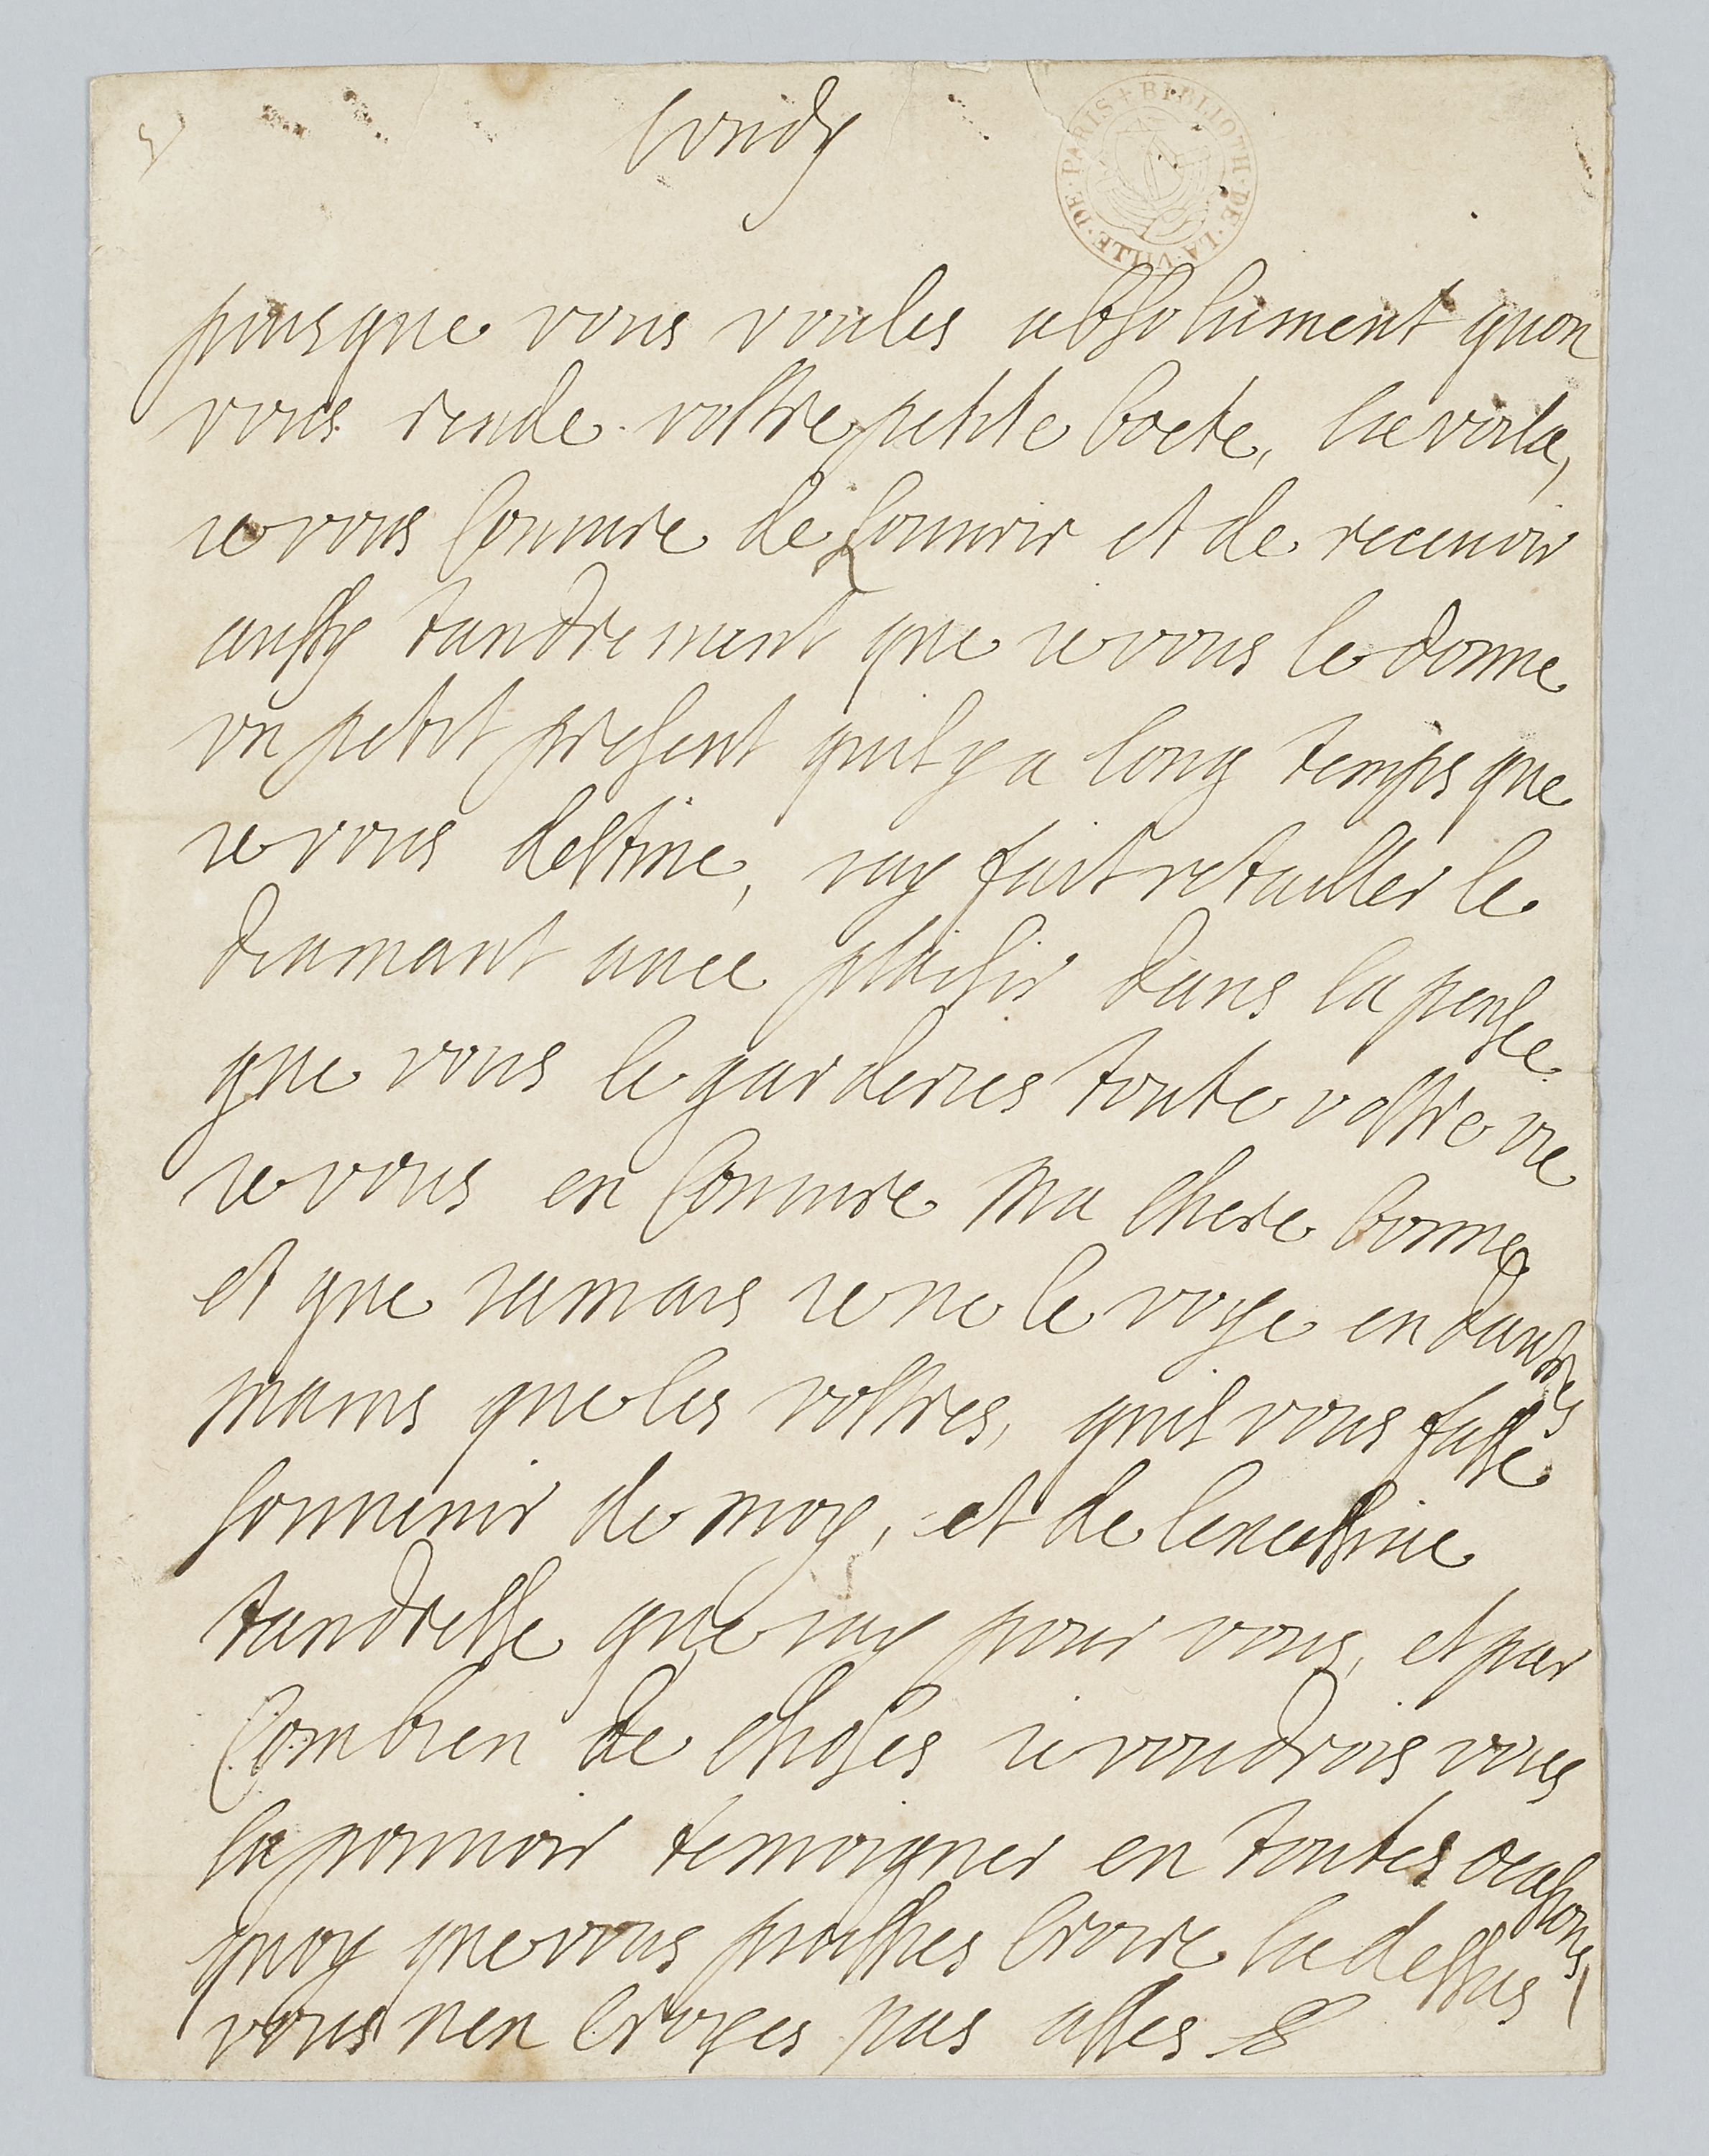 Lundy
BIBLIOTH · DE · LA · VILLE · DE · PARIS
puisque vous voules absolument quon
vous rende vostre petite boete, la voila,
ie vous coniure de conseruir et de receuoir
aussy tandrement que ie vous le donne
vn petit present quil y a long temps que
ie vous destine, iay fait retailler le
diamant auec plaisir dans la pensee
que vous le garderies toute vostre vie
ie vous en coniure ma chere bonne
et que iamais ie ne le voye en dautres
mains que les vostres, quil vous fasse
souuenir de moy, et de lexcessiue
tandresse que iay pour vous, et par
combien de choses ie voudrois vous
la pouuoir temoigner en toutes ocasions
quoy que vous puissies croire la dessus
vous nen croyes pas asses